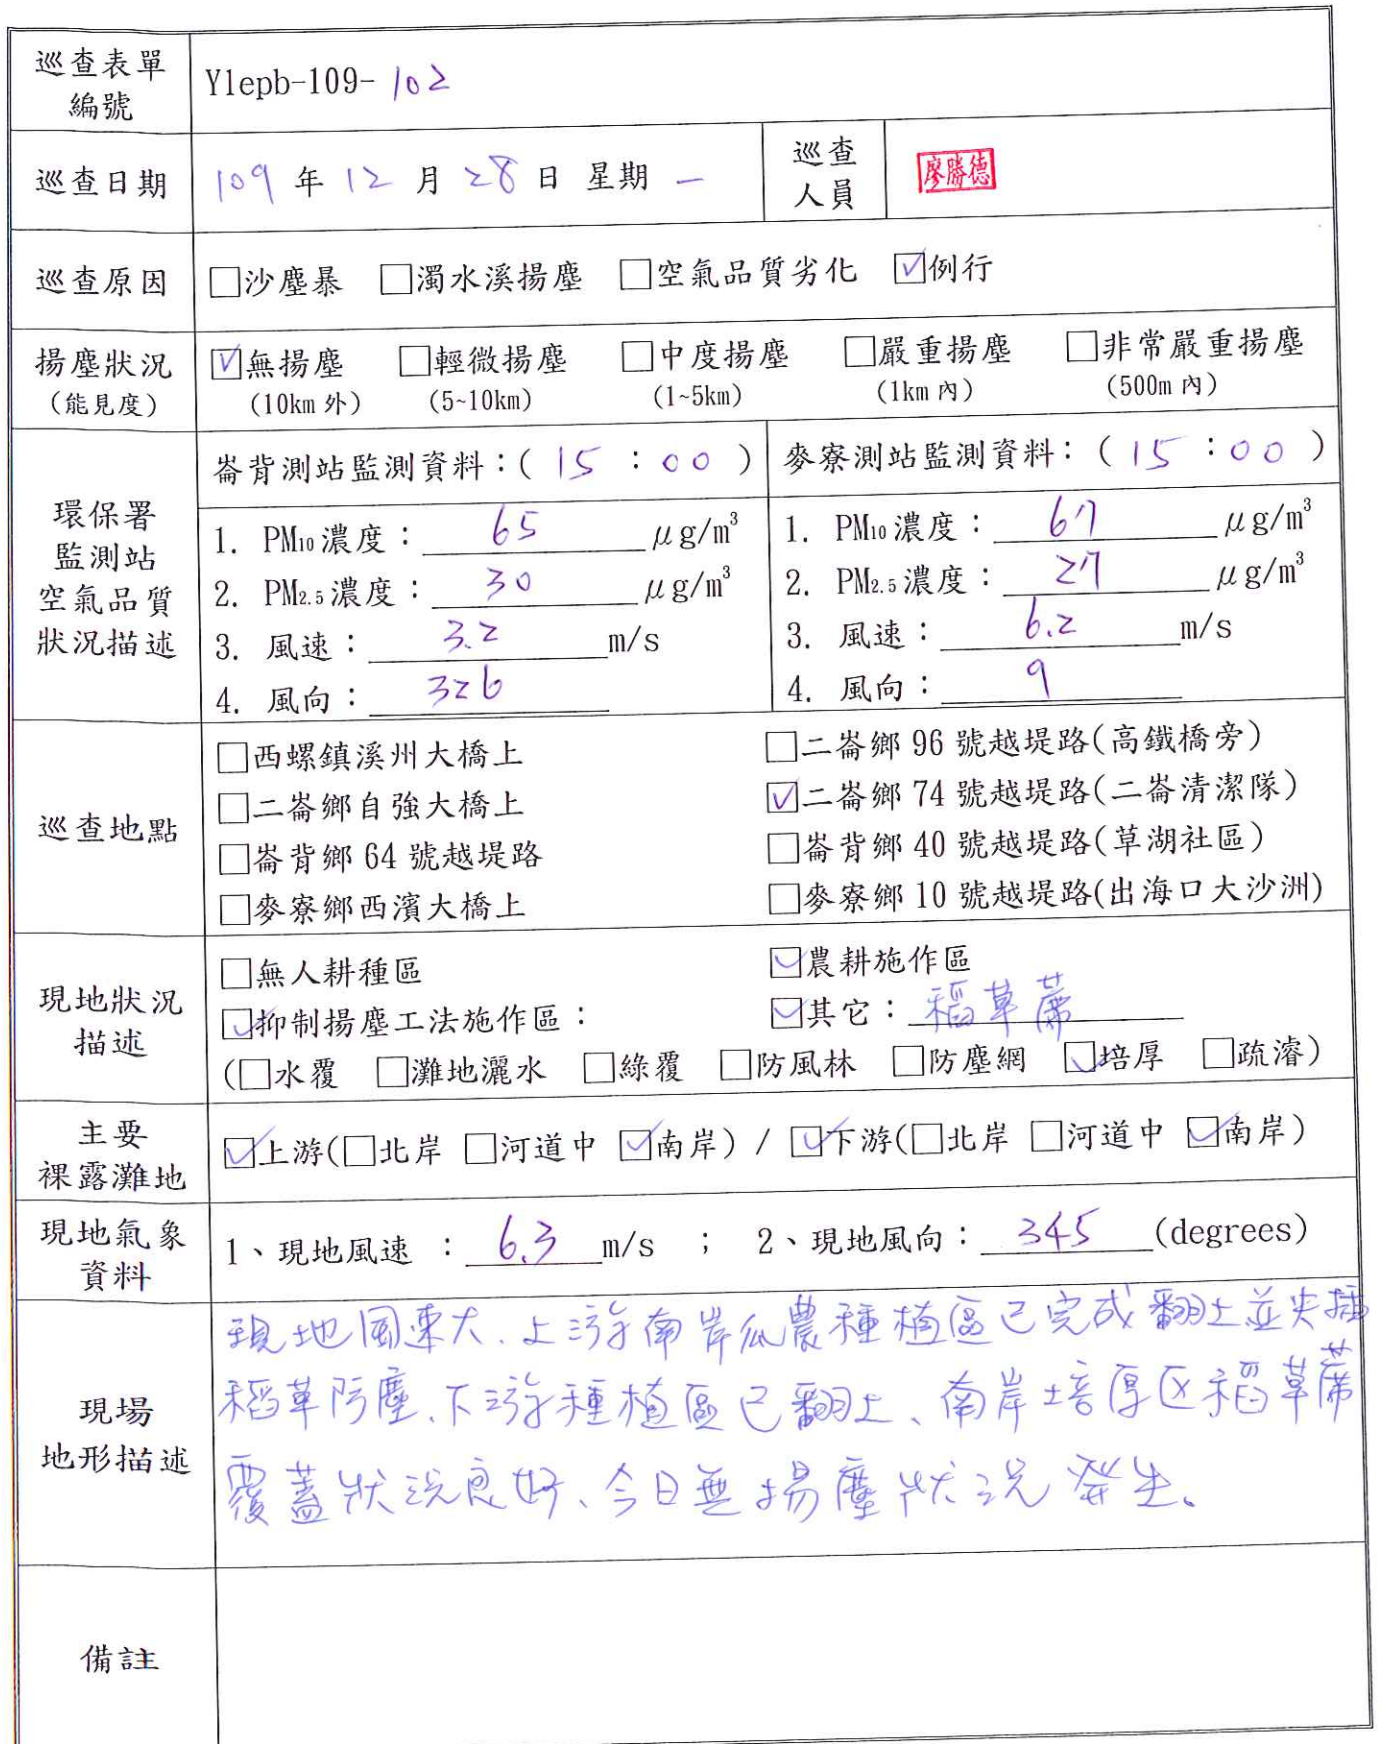 巡查表單
編號
Ylepb-109-102
巡查日期
109 年 12 月 28 日 星期 一
巡查
人員
廖勝德
巡查原因
□沙塵暴 □濁水溪揚塵 □空氣品質劣化 ☑例行
揚塵狀況
(能見度)
☑無揚塵 □輕微揚塵 □中度揚塵 □嚴重揚塵 □非常嚴重揚塵
(10km 外) (5~10km) (1~5km) (1km 內) (500m 內)
環保署
監測站
空氣品質
狀況描述
崙背測站監測資料：( 15 : 00 )
1. PM10 濃度： 65 μg/m³
2. PM2.5 濃度： 30 μg/m³
3. 風速： 3.2 m/s
4. 風向： 326
麥寮測站監測資料：( 15 : 00 )
1. PM10 濃度： 67 μg/m³
2. PM2.5 濃度： 27 μg/m³
3. 風速： 6.2 m/s
4. 風向： 9
巡查地點
□西螺鎮溪州大橋上 □二崙鄉 96 號越堤路(高鐵橋旁)
□二崙鄉自強大橋上 ☑二崙鄉 74 號越堤路(二崙清潔隊)
□崙背鄉 64 號越堤路 □崙背鄉 40 號越堤路(草湖社區)
□麥寮鄉西濱大橋上 □麥寮鄉 10 號越堤路(出海口大沙洲)
現地狀況
描述
□無人耕種區 ☑農耕施作區
☑抑制揚塵工法施作區： ☑其它：稻草蓆
(□水覆 □灘地灑水 □綠覆 □防風林 □防塵網 ☑培厚 □疏濬)
主要
裸露灘地
☑上游(□北岸 □河道中 ☑南岸) / ☑下游(□北岸 □河道中 ☑南岸)
現地氣象
資料
1、現地風速 ： 6.3 m/s ； 2、現地風向： 345 (degrees)
現場
地形描述
現地風速大、上游南岸瓜農種植區已完成翻土並夾插
稻草防塵、下游種植區已翻土、南岸培厚区稻草蓆
覆蓋狀況良好、今日無揚塵狀況發生、
備註